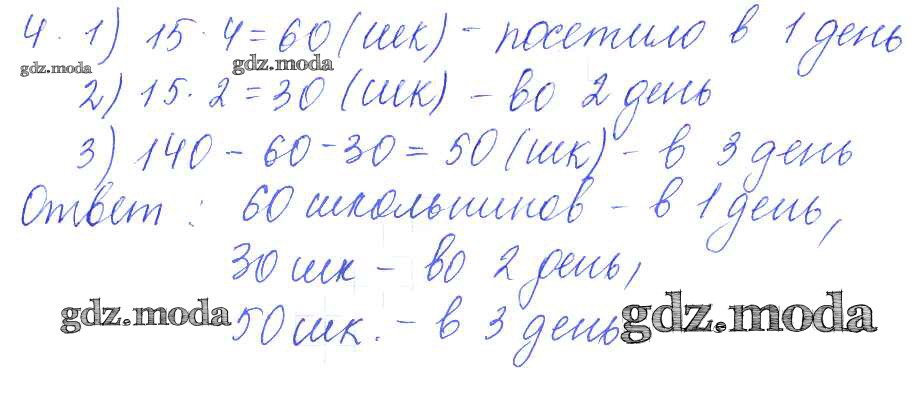 4. 1) 15 · 4 = 60 (шк) - посетило в 1 день
gdz.moda gdz.moda
2) 15 · 2 = 30 (шк) - во 2 день
3) 140 - 60 - 30 = 50 (шк) - в 3 день
Ответ: 60 школьников - в 1 день,
30 шк - во 2 день,
gdz.moda 50 шк. - в 3 день gdz.moda